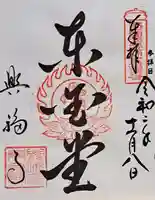 奉拝
参拝日
令和二年
十二月八日
東金堂
興福寺